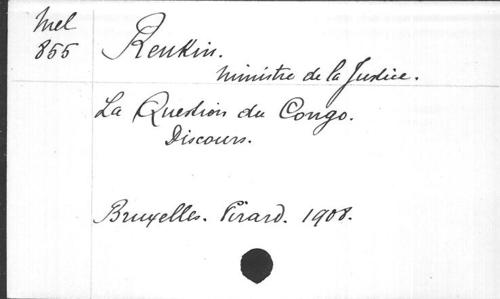 Mel
855
Renkin.
Ministre de la Justice.
La Question du Congo.
Discours.
Bruxelles. Pirard. 1908.